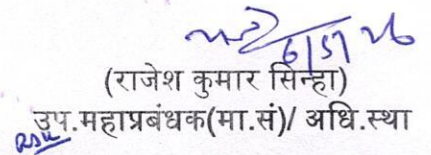 6/5/26
(राजेश कुमार सिन्हा)
उप.महाप्रबंधक(मा.सं)/ अधि.स्था